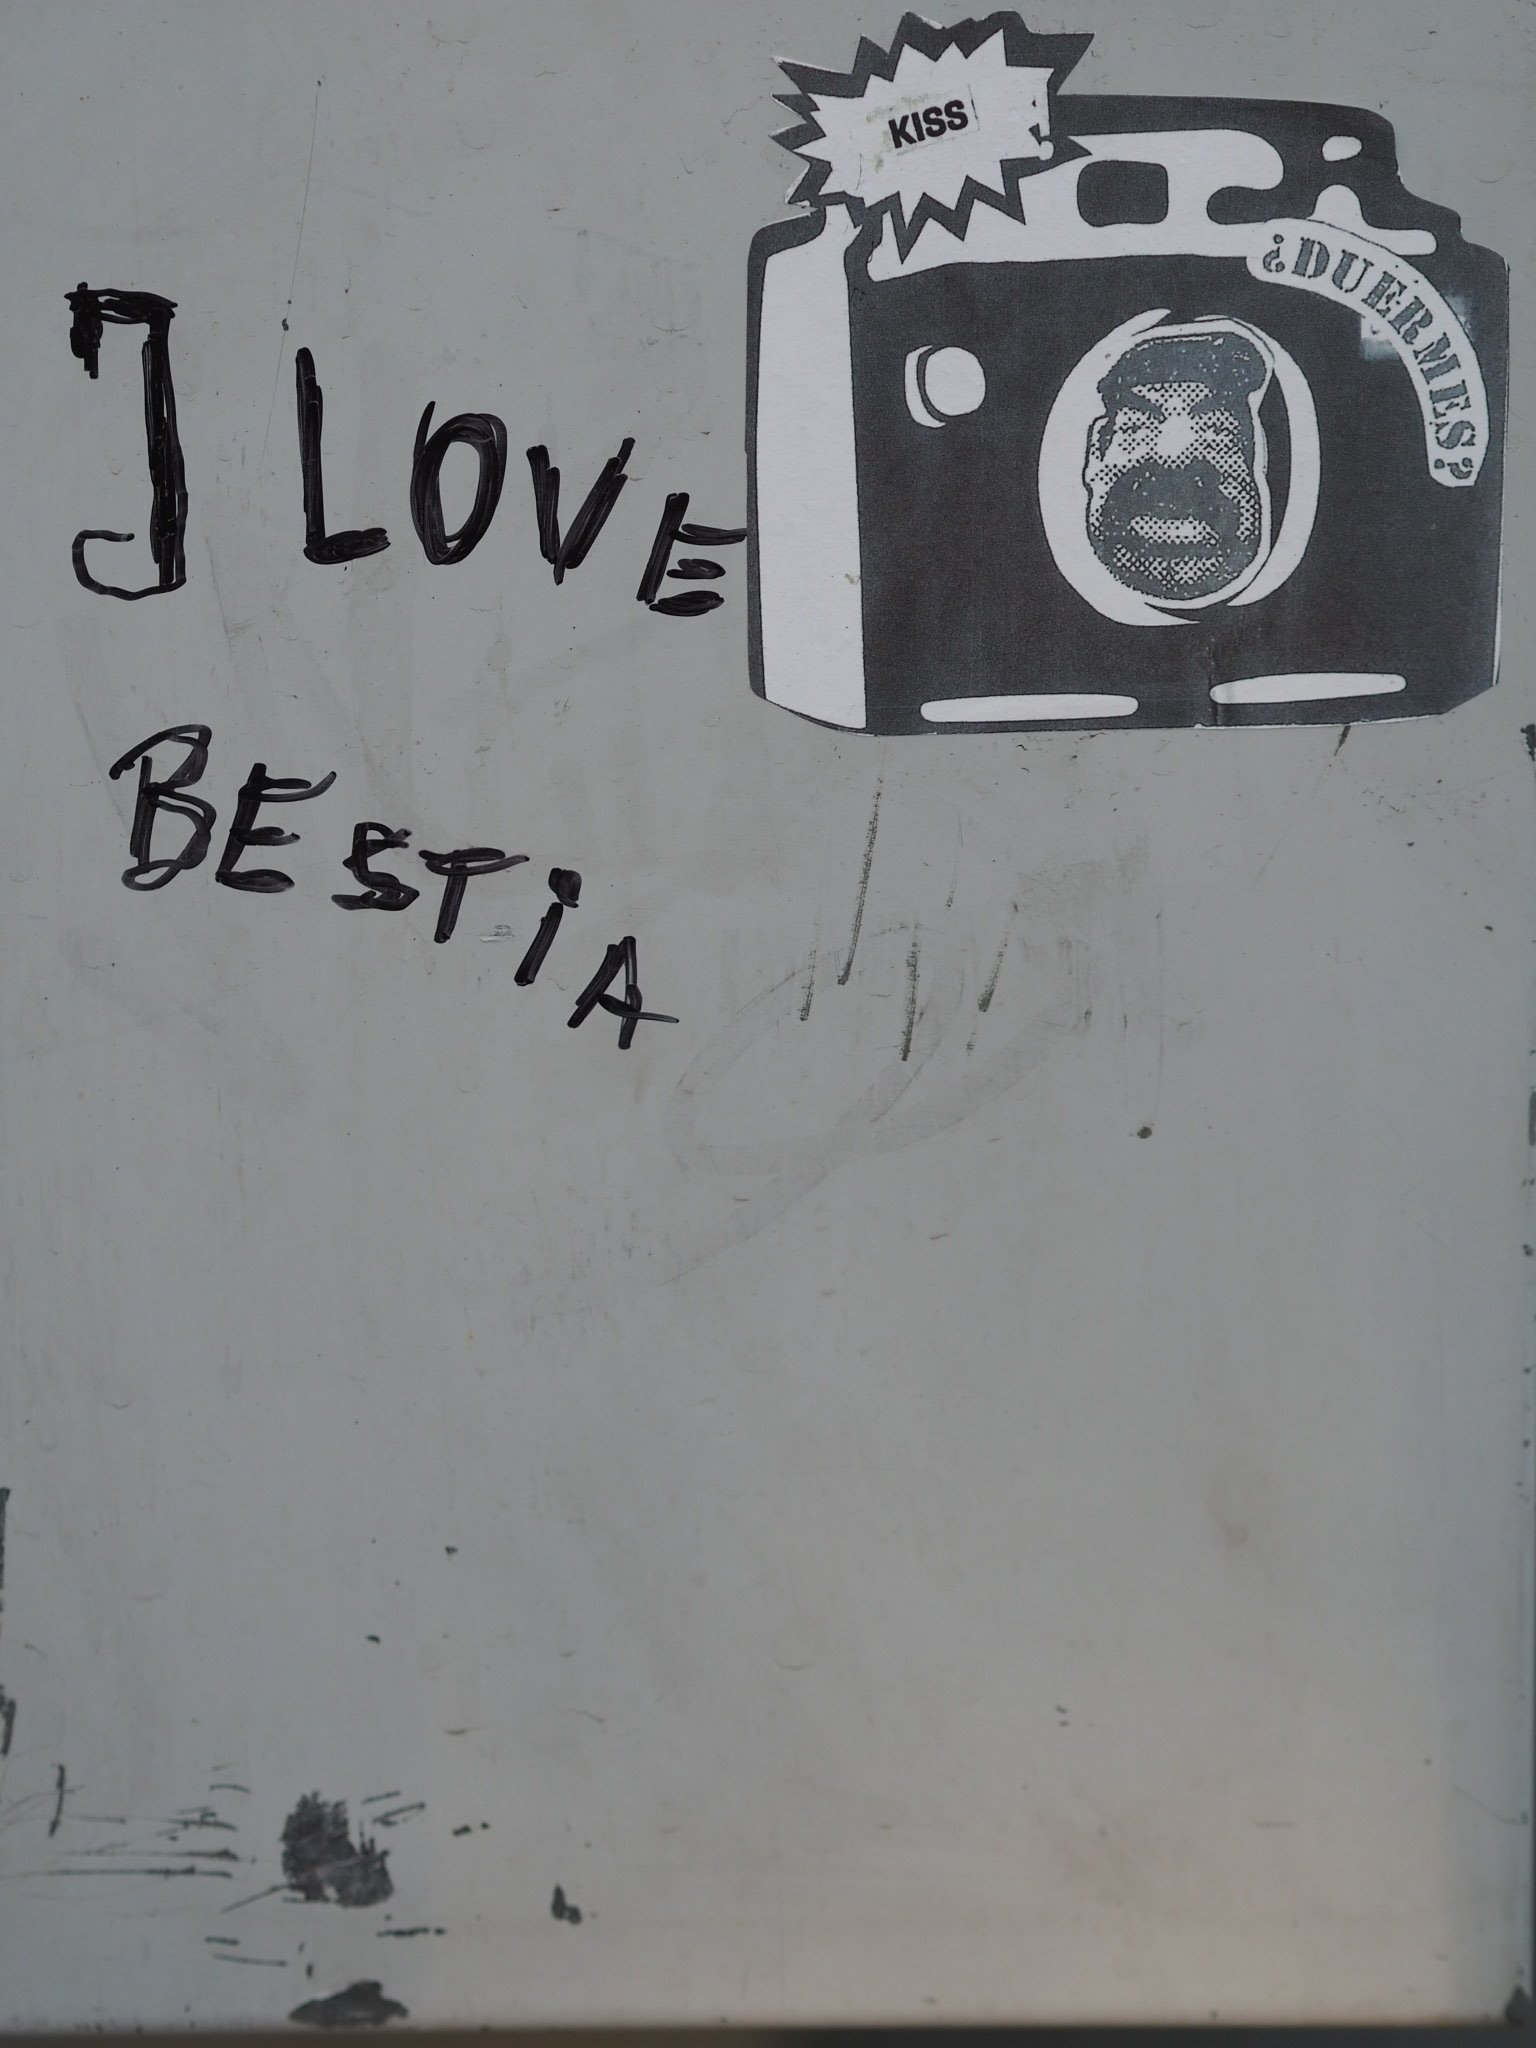 KISS
¿DUERMES?
I LOVE
BESTiA